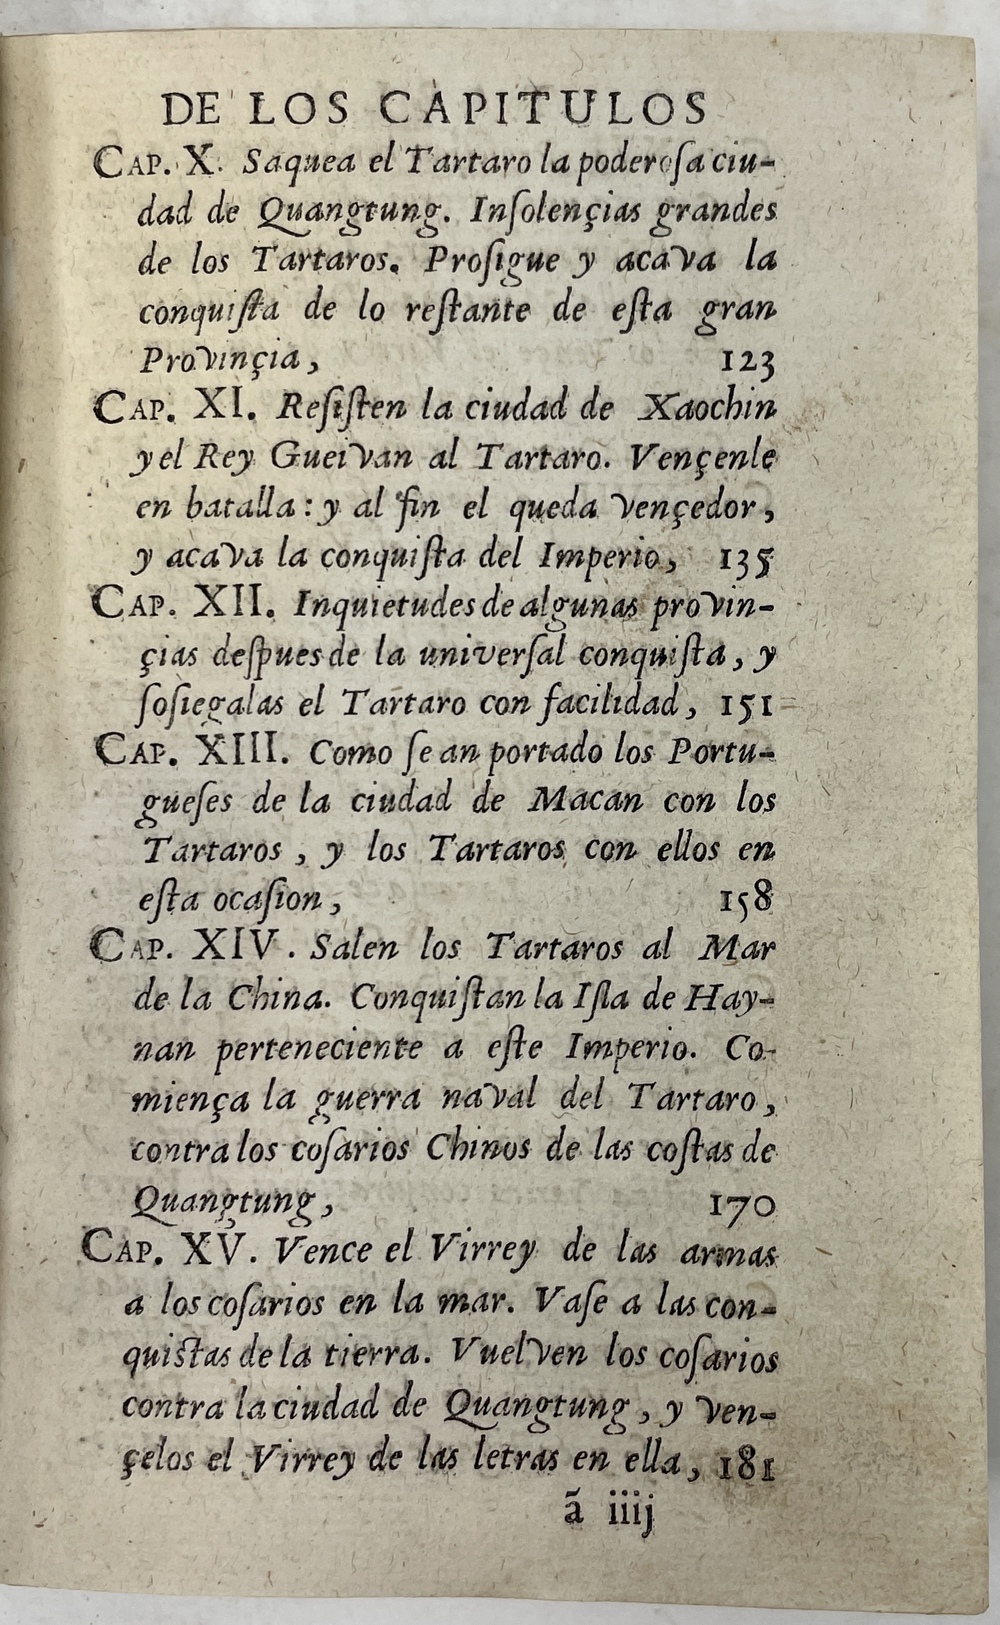 DE LOS CAPITULOS
CAP. X. Saquea el Tartaro la poderoſa ciu-
dad de Quangtung. Inſolençias grandes
de los Tartaros. Proſigue y acava la
conquiſta de lo reſtante de eſta gran
Provinçia, 123
CAP. XI. Reſiſten la ciudad de Xaochin
y el Rey Gueivan al Tartaro. Vençenle
en batalla : y al fin el queda vençedor,
y acava la conquiſta del Imperio, 135
CAP. XII. Inquietudes de algunas provin-
çias deſpues de la univerſal conquiſta, y
ſoſiegalas el Tartaro con facilidad, 151
CAP. XIII. Como ſe an portado los Portu-
gueſes de la ciudad de Macan con los
Tartaros, y los Tartaros con ellos en
eſta ocaſion, 158
CAP. XIV. Salen los Tartaros al Mar
de la China. Conquiſtan la Iſla de Hay-
nan perteneciente a eſte Imperio. Co-
miença la guerra naval del Tartaro,
contra los coſarios Chinos de las coſtas de
Quangtung, 170
CAP. XV. Vence el Virrey de las armas
a los coſarios en la mar. Vaſe a las con-
quiſtas de la tierra. Vuelven los coſarios
contra la ciudad de Quangtung, y ven-
çelos el Virrey de las letras en ella, 181
ã iiij